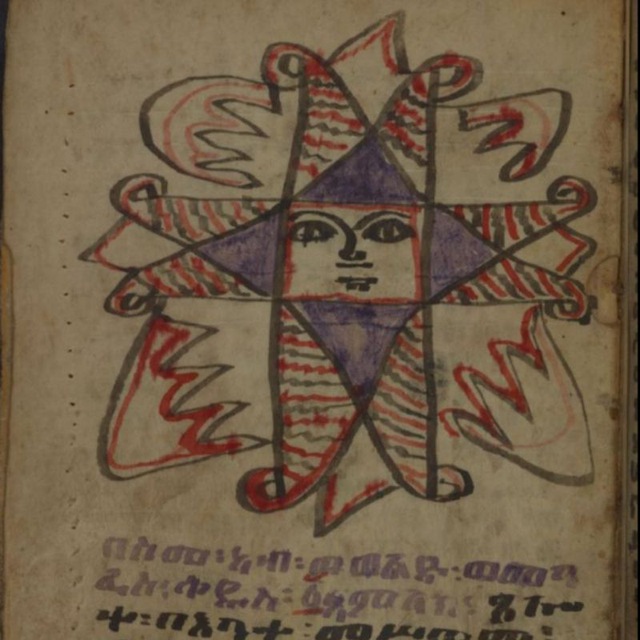 በስመ፡አብ፡ወወልድ፡ወመን
ፈስ፡ቅዱስ፡፩አምላክ፡ጸሎ
ት፡በእንተ፡